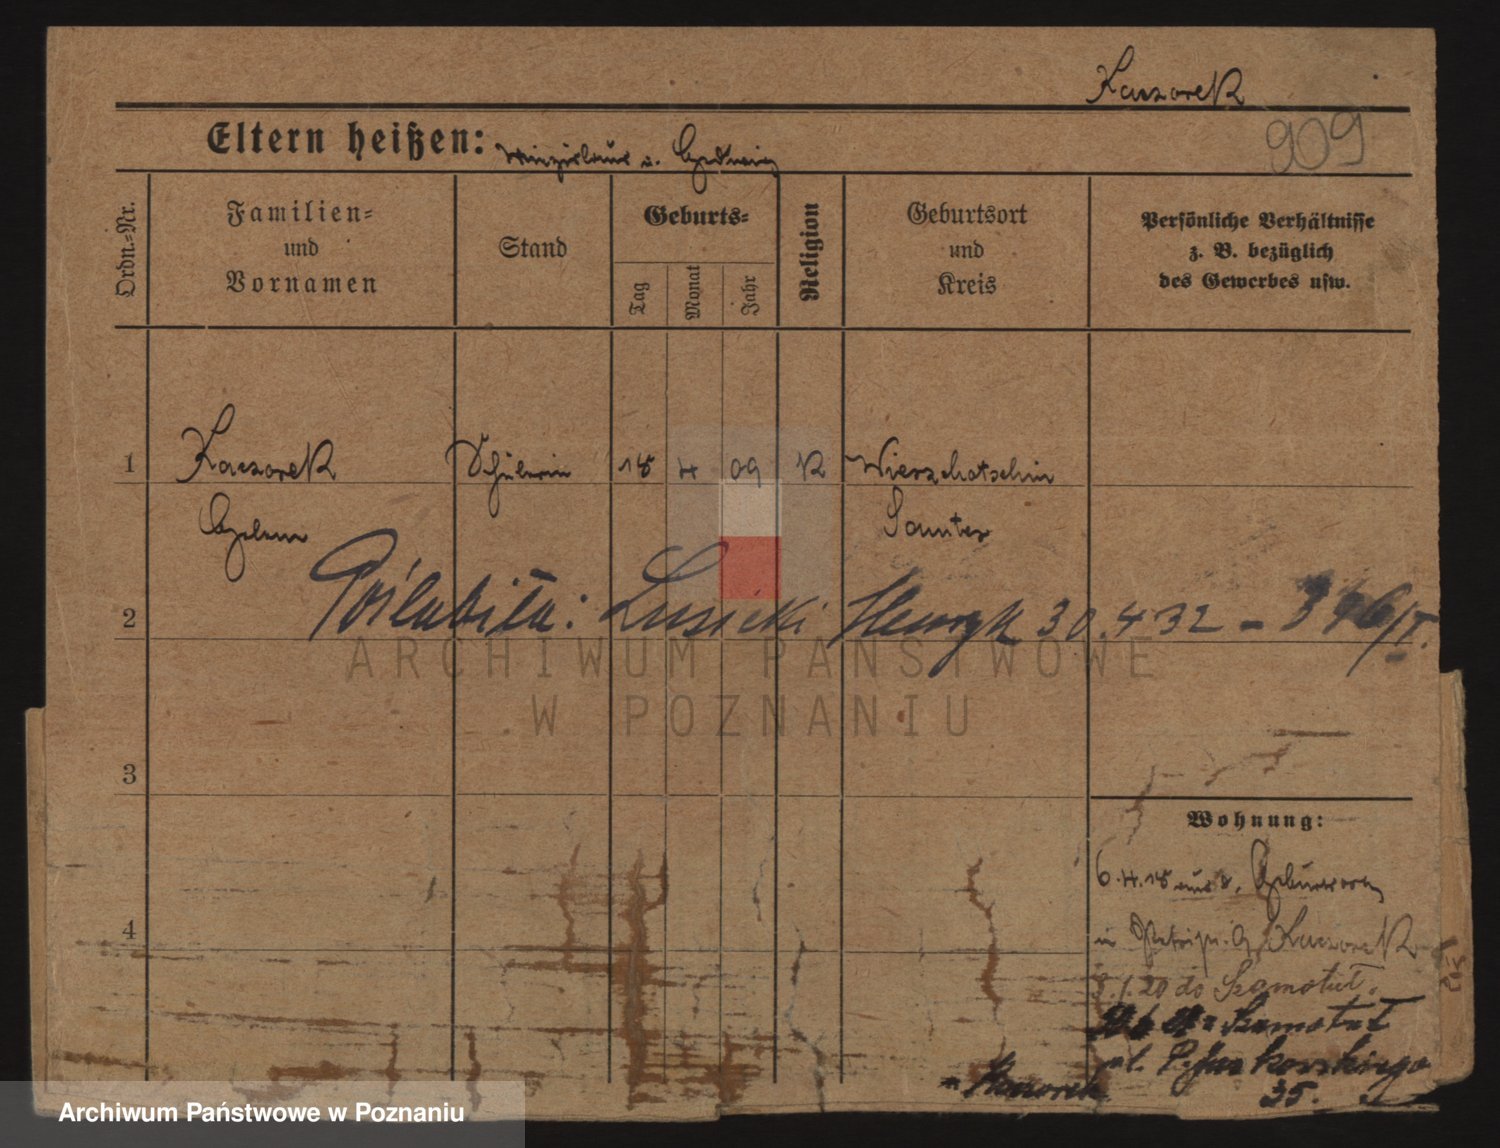 Kaczorek
909
Eltern heißen: u. Hedwig
Ordn.-Nr.
Familien-
und
Vornamen
Stand
Geburts-
Tag
Monat
Jahr
Religion
Geburtsort
und
Kreis
Persönliche Verhältnisse
z. B. bezüglich
des Gewerbes usw.
1 Kaczorek Schülerin 18 4 09 K Wierzchotschin
Helene Samter
2 Poślubiła: Lusicki Henryk 30.4 32 - 346/I.
ARCHIWUM PAŃSTWOWE
W POZNANIU
3
Wohnung:
6.4.18 aus
4 Kaczorek
8.1.20 do Szamotuł.
Szamotuł
35.
Kaczorek
Archiwum Państwowe w Poznaniu